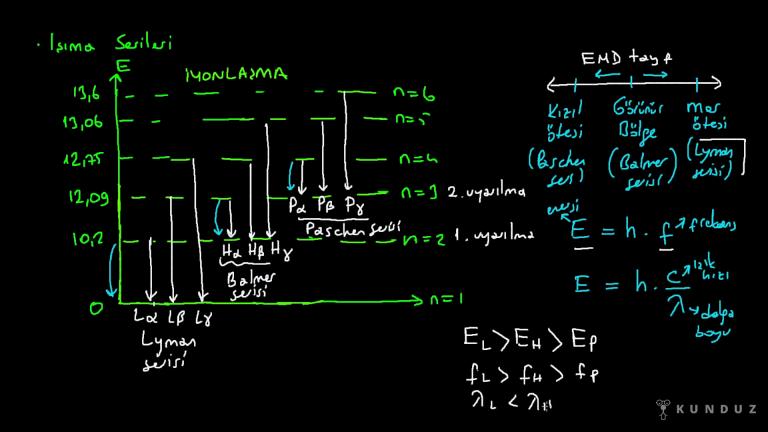 · Işıma Serileri
E
İYONLAŞMA
13,6 n=6
13,06 n=5
12,75 n=4
12,09 n=3 2. uyarılma
10,2 n=2 1. uyarılma
0 n=1
Pα Pβ Pγ
Paschen serisi
Hα Hβ Hγ
Balmer
serisi
Lα Lβ Lγ
Lyman
serisi
EMD tayf
Kızıl
ötesi
(Paschen
seri)
Görünür
Bölge
(Balmer
serisi)
mor
ötesi
(Lyman
serisi)
enerji
E = h · f frekans
E = h · c/λ ışık hızı
dalga
boyu
E_L > E_H > E_P
f_L > f_H > f_P
λ_L < λ_H
KUNDUZ